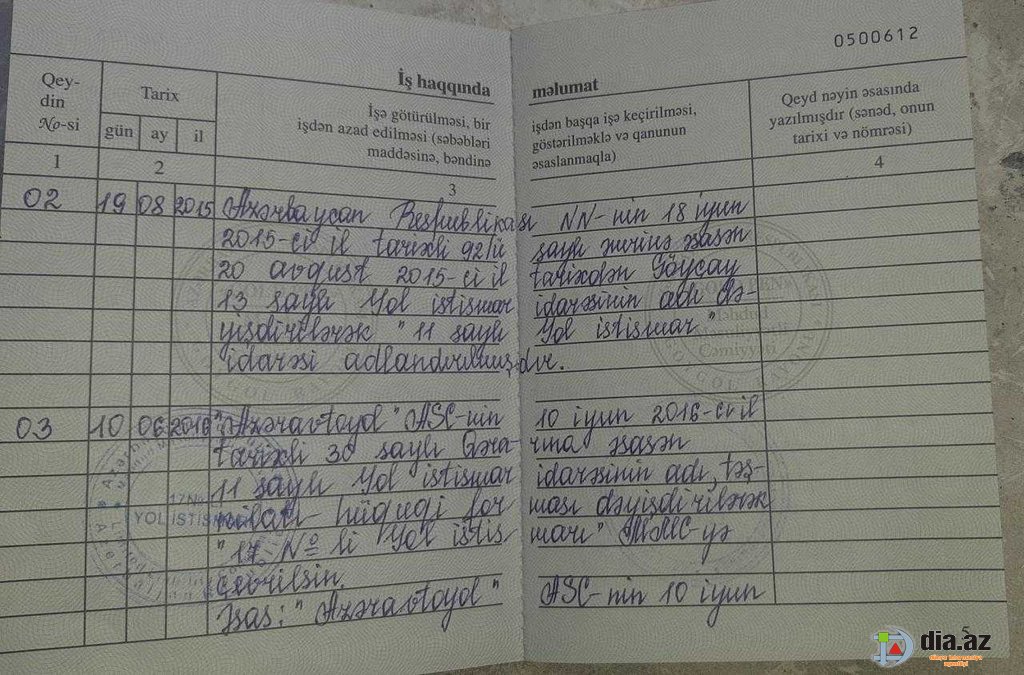 0500612
İş haqqında məlumat
Qey-
din
No-si
Tarix
gün ay il
İşə götürülməsi, bir işdən başqa işə keçirilməsi,
işdən azad edilməsi (səbəbləri göstərilməklə və qanunun
maddəsinə, bəndinə əsaslanmaqla)
Qeyd nəyin əsasında
yazılmışdır (sənəd, onun
tarixi və nömrəsi)
1 2 3 4
02 19 08 2015 Azərbaycan Respublikası NN-nin 18 iyun
2015-ci il tarixli saylı əsasən
20 avqust 2015-ci il tarixdən Göyçay
13 saylı Yol istismar idarəsinin adı də-
yişdirilərək "11 saylı Yol istismar"
idarəsi adlandırılmışdır.
03 10 06 2016 "Azəravtoyol" ASC-nin 10 iyun 2016-ci il
tarixli 30 saylı Qəra- rına əsasən
11 saylı Yol istismar idarəsinin adı, təş-
kilatı hüquqi for ması dəyişdirilərək
"17 № li Yol istis marı" MMC-yə
çevrilsin.
Əsas: "Azəravtoyol" ASC-nin 10 iyun
YOL İSTİSMARI
Məhdud
Cəmiyyəti
5
dia.az